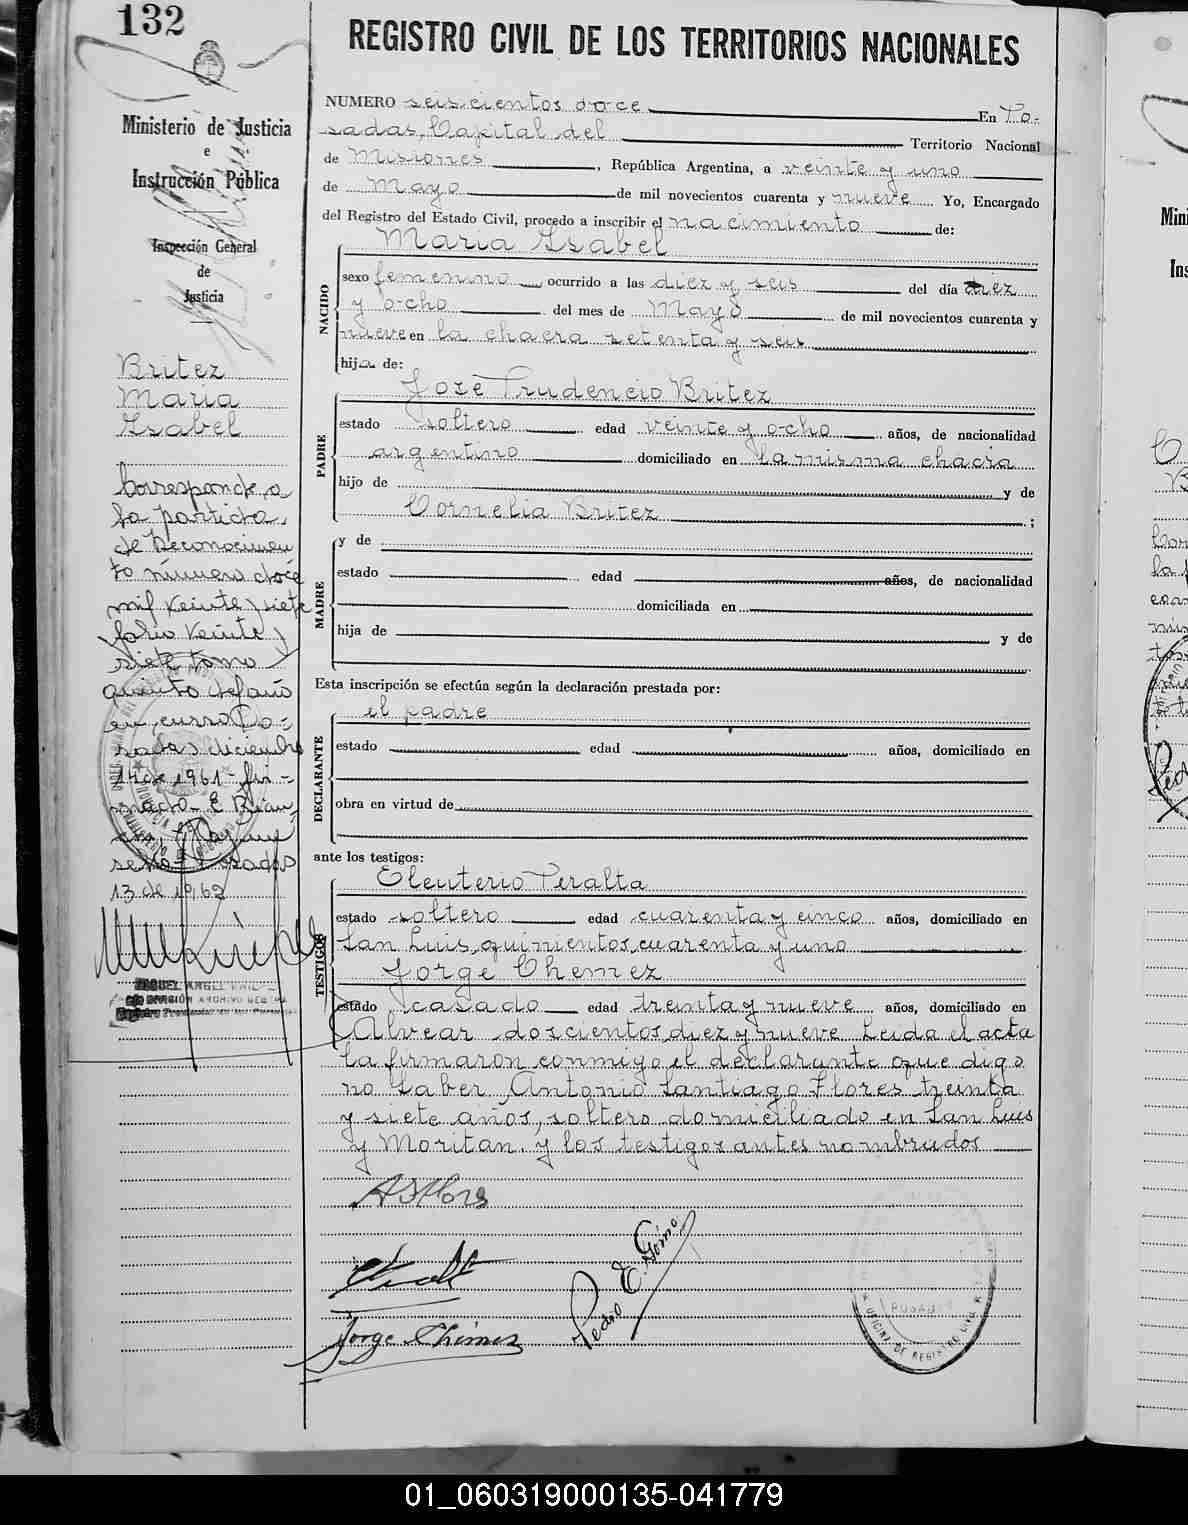 132
REGISTRO CIVIL DE LOS TERRITORIOS NACIONALES
Ministerio de Justicia
e
Instrucción Pública
Inspección General
de
Justicia
Britez
Maria
Ysabel
Corresponde a
la partida
de Reconocimien
to número doce
mil veinte y siete
folio veinte y
siete tomo
quinto del año
en curso Po=
sadas diciembre
14 de 1961-fir-
mado- E
Posadas
13 de 1962
MIGUEL ANGEL
DIVISIÓN ARCHIVO GENERAL
NUMERO seiscientos doce En Po-
sadas, Capital del Territorio Nacional
de Misiones, República Argentina, a veinte y uno
de Mayo de mil novecientos cuarenta y nueve Yo, Encargado
del Registro del Estado Civil, procedo a inscribir el nacimiento de:
Maria Ysabel
NACIDO
sexo femenino ocurrido a las diez y seis del día diez
y ocho del mes de Mayo de mil novecientos cuarenta y
nueve en la chacra setenta y seis
hija de:
José Prudencio Britez
PADRE
estado soltero edad veinte y ocho años, de nacionalidad
argentino domiciliado en la misma chacra
hijo de y de
Cornelia Britez ;
MADRE
y de
estado edad años, de nacionalidad
domiciliada en
hija de y de
Esta inscripción se efectúa según la declaración prestada por:
el padre
DECLARANTE
estado edad años, domiciliado en
obra en virtud de
ante los testigos:
Eleuterio Peralta
TESTIGOS
estado soltero edad cuarenta y cinco años, domiciliado en
San Luis, quinientos cuarenta y uno
Jorge Chemez
estado casado edad treinta y nueve años, domiciliado en
Alvear doscientos diez y nueve. Leida el acta
la firmaron conmigo el declarante que digo
no saber, Antonio Santiago Flores treinta
y siete años, soltero domiciliado en San Luis
y Moritan. y los testigos antes nombrados
ASFlores
Jorge Chemes
Pedro E. Gómo
POSADAS
OFICINA DE REGISTRO CIVIL
Mini
Ins
01_060319000135-041779